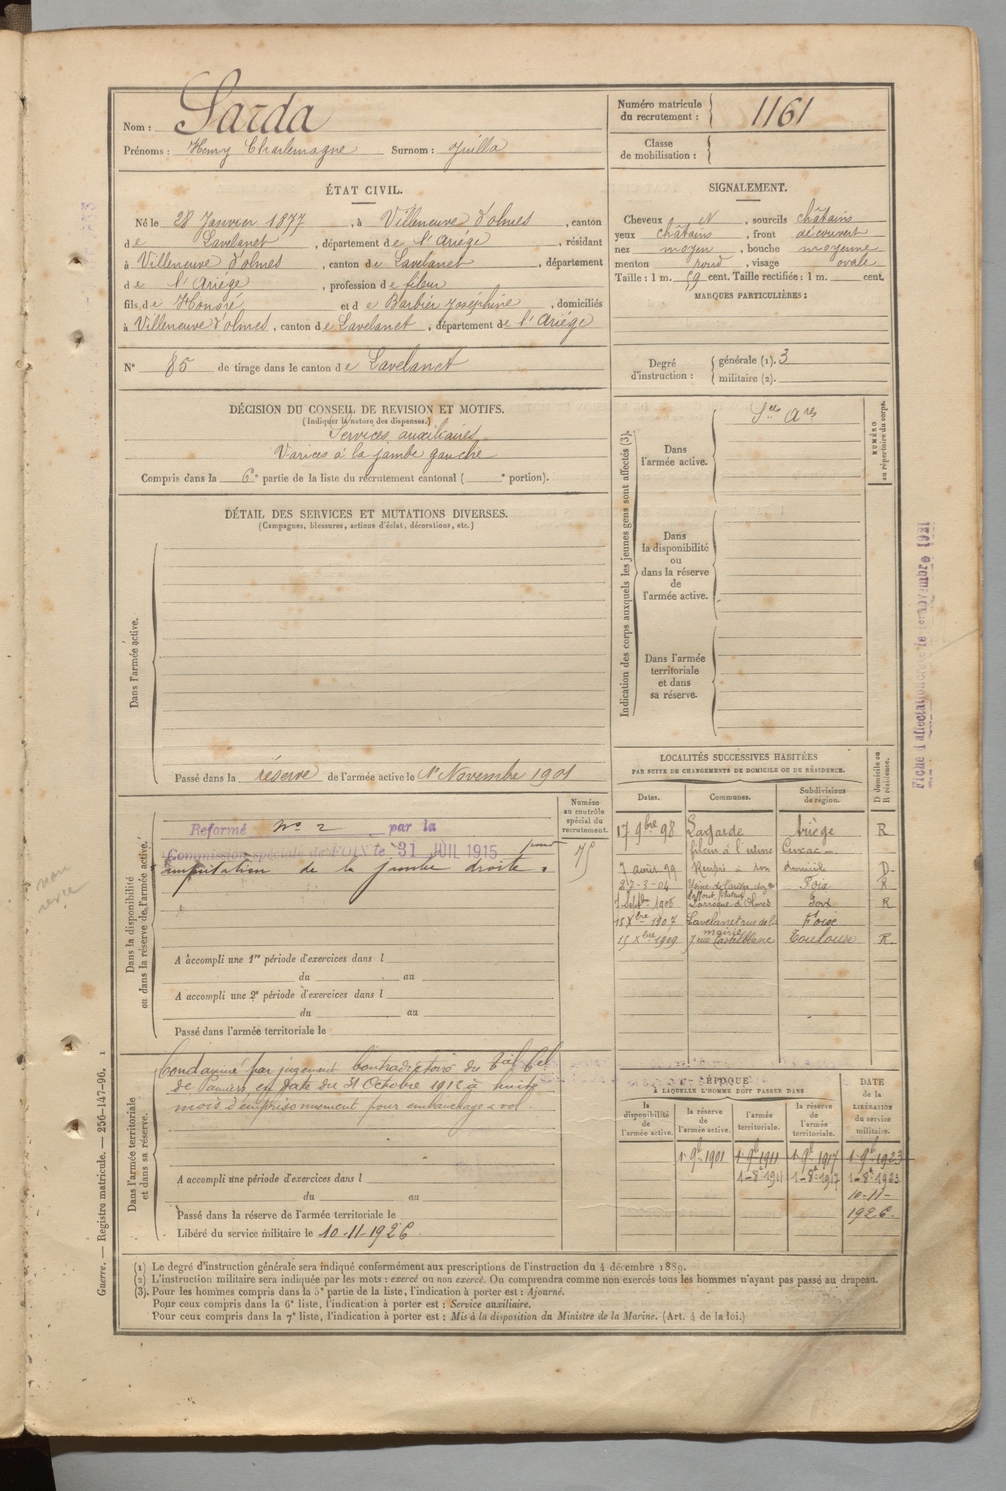 Nom : Sarda
Prénoms : Henry Charlemagne Surnom : Juilla
Numéro matricule du recrutement : 1161
Classe de mobilisation :
ÉTAT CIVIL.
Né le 28 Janvier 1877, à Villeneuve d'olmes, canton
de Lavelanet, département de l'Ariége, résidant
à Villeneuve d'olmes, canton de Lavelanet, département
de l'Ariége, profession de fileur
fils de Honoré et de Barbier Joséphine, domiciliés
à Villeneuve d'olmes, canton de Lavelanet, département de l'Ariége
N° 85 de tirage dans le canton de Lavelanet
SIGNALEMENT.
Cheveux N, sourcils châtains
yeux châtains, front découvert
nez moyen, bouche moyenne
menton rond, visage ovale
Taille : 1 m. 59 cent. Taille rectifiée : 1 m. cent.
MARQUES PARTICULIÈRES :
Degré d'instruction : générale (1). 3
militaire (2).
DÉCISION DU CONSEIL DE REVISION ET MOTIFS.
(Indiquer la nature des dispenses.)
Services auxiliaires
Varices à la jambe gauche
Compris dans la 6e partie de la liste du recrutement cantonal ( e portion).
DÉTAIL DES SERVICES ET MUTATIONS DIVERSES.
(Campagnes, blessures, actions d'éclat, décorations, etc.)
Dans l'armée active.
Passé dans la réserve de l'armée active le 1er Novembre 1901
Indication des corps auxquels les jeunes gens sont affectés (3).
Dans l'armée active.
Sces Ares
NUMÉRO au répertoire du corps.
Dans la disponibilité ou dans la réserve de l'armée active.
Dans l'armée territoriale et dans sa réserve.
Dans la disponibilité ou dans la réserve de l'armée active.
Numéro au contrôle spécial du recrutement.
Reformé No 2 par la
Commission spéciale de FOIX le 31 JUIL 1915 pour
amputation de la jambe droite.
A accompli une 1re période d'exercices dans l
du au
A accompli une 2e période d'exercices dans l
du au
Passé dans l'armée territoriale le
LOCALITÉS SUCCESSIVES HABITÉES
PAR SUITE DE CHANGEMENTS DE DOMICILE OU DE RÉSIDENCE.
Dates. Communes. Subdivisions de région. D domicile ou R résidence.
17 9bre 98 Lagarde Ariège R
fileur à l'usine Cuxac
7 avril 99 Rempis à son domicile D
27-3-04 Foix R
1 Septbre 1906 Larroque d'Olmes Foix R
15 Xbre 1907 Lavelanet rue de la mairie Foix
15 Xbre 1909 7 rue Castelblanc Toulouse R
Dans l'armée territoriale et dans sa réserve.
Condamné par jugement Contradictoire du Bal Cel
de Pamiers en date du 31 Octobre 1912 à huit
mois d'emprisonnement pour embauchage & vol.
A accompli une période d'exercices dans l
du au
Passé dans la réserve de l'armée territoriale le
Libéré du service militaire le 10-11-1926
ÉPOQUE
À LAQUELLE L'HOMME DOIT PASSER DANS
la disponibilité de l'armée active. la réserve de l'armée active. l'armée territoriale. la réserve de l'armée territoriale. DATE de la LIBÉRATION du service militaire.
1 9b 1901 1 9b 1911 1 9b 1917 1 9b 1923
1-8e 1911 1-8e 1917 1-8e 1923
10-11-
1926.
(1) Le degré d'instruction générale sera indiqué conformément aux prescriptions de l'instruction du 4 décembre 1889.
(2) L'instruction militaire sera indiquée par les mots : exercé ou non exercé. On comprendra comme non exercés tous les hommes n'ayant pas passé au drapeau.
(3). Pour les hommes compris dans la 5e partie de la liste, l'indication à porter est : Ajourné.
Pour ceux compris dans la 6e liste, l'indication à porter est : Service auxiliaire.
Pour ceux compris dans la 7e liste, l'indication à porter est : Mis à la disposition du Ministre de la Marine. (Art. 4 de la loi.)
Guerre. — Registre matricule. — 256-147-96. 1